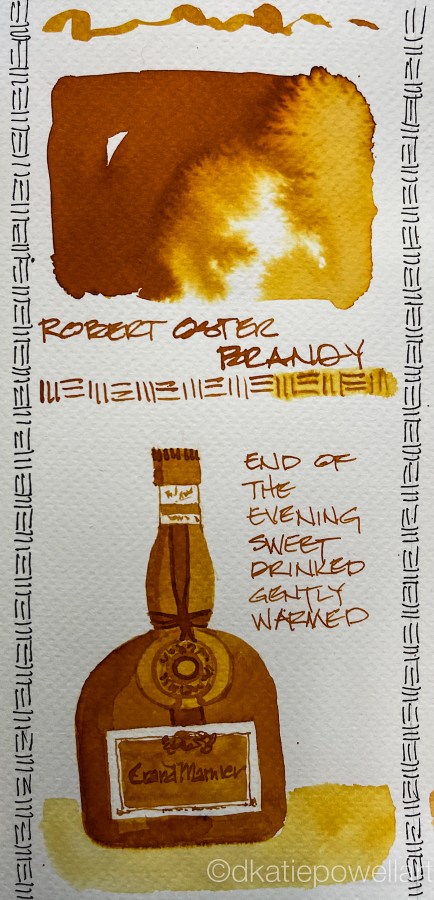 ROBERT OSTER
BRANDY
END OF
THE
EVENING
SWEET
DRINKED
GENTLY
WARMED
Grand Marnier
©dkatiepowellart